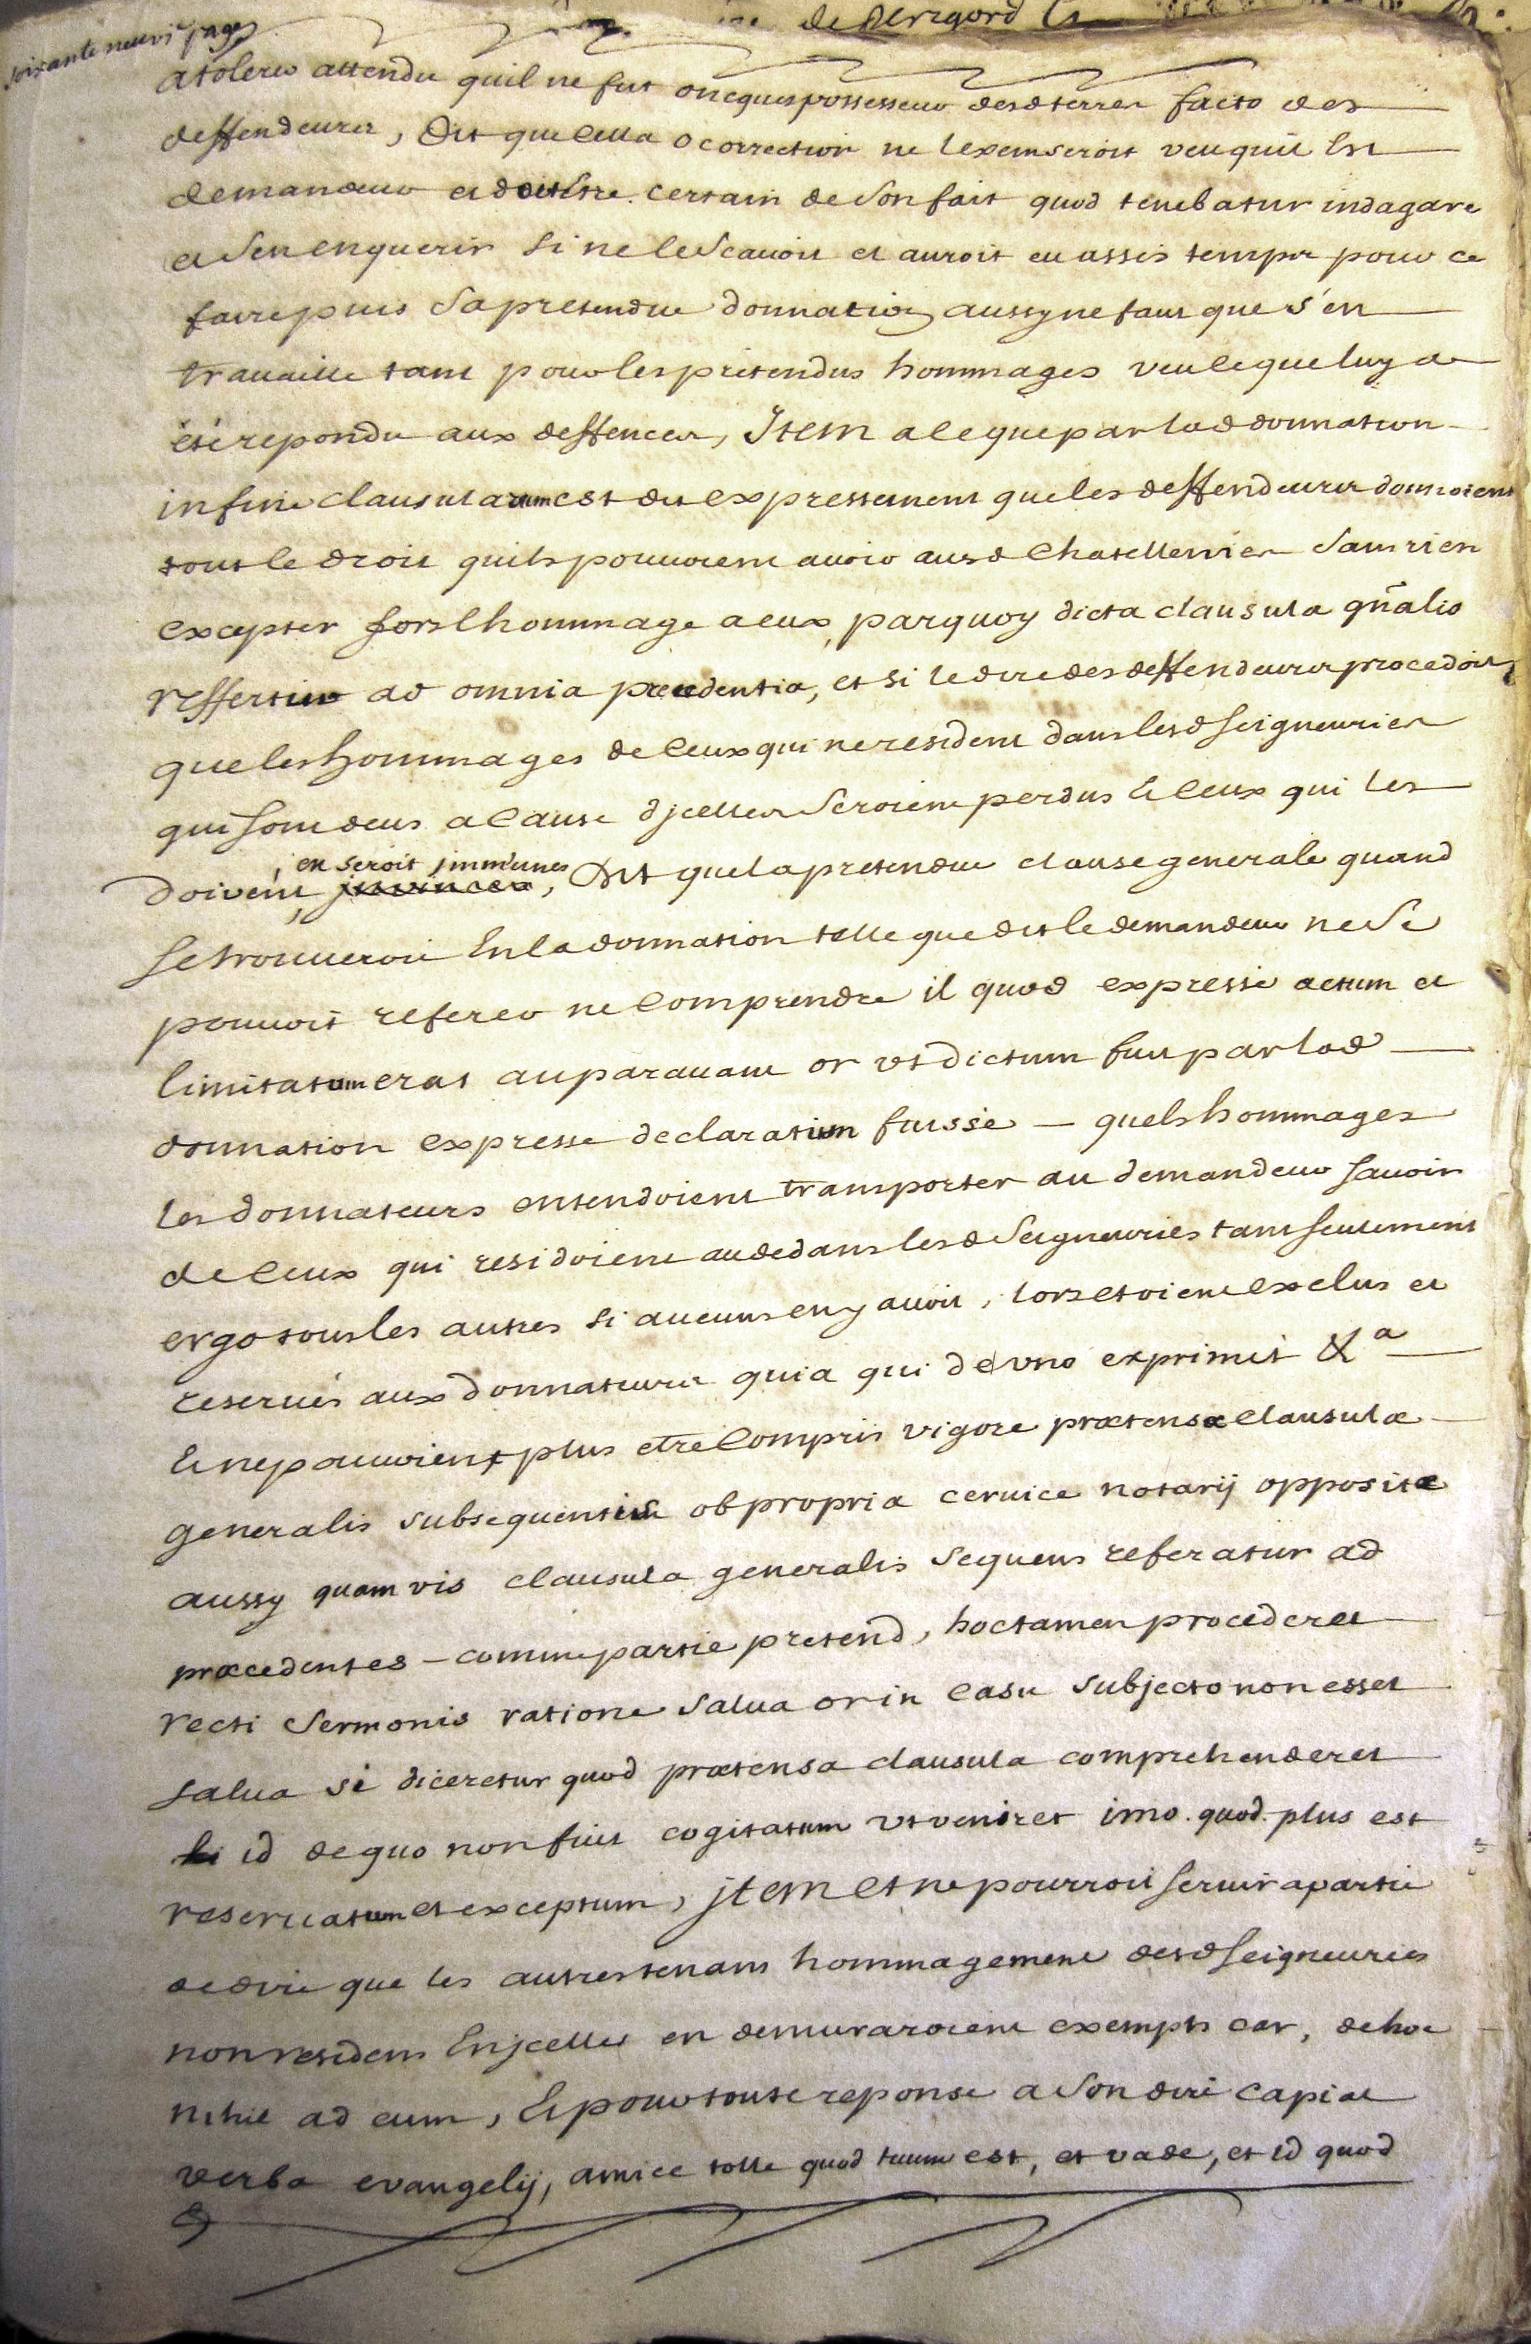 de Perigord
soixante neuvie page
a tolerer attendu quil ne fut oncques possesseur desd terres facto des
deffendeurs, Dit que cella o correction ne lexemseroit veu quil Est
demandeur et doit Estre certain de son fait quod tenebatur indagare
et sen enquerir si ne le scavoit et auroit eu assés temps pour ce
faire puis sa pretendue donnation aussy ne faut que s'en
travaille tant pour les pretendus hommages veu le que luy a
été repondu aux deffences, Item alegue par lad donnation
in fine clausularum est dit expressement que les deffendeurs donnoient
tout le droit quils pouvoient avoir ausd Chatellenies sans rien
excepter fors lhommage a eux, parquoy dicta clausula gñalis
reffertur ad omnia precedentia, et si le dire des deffendeurs procedoit,
que les hommages de Ceux qui ne resident dans lesd seigneuries
qui sont deus a Cause dicelles seroient perdus Et Ceux qui les
doivent, en seroit jmmunes, Dit que la pretendue clause generale quand
se trouveroit En la donnation telle que dit le demandeur ne se
pouvoit referer ne Comprendre il quod expresse actum et
limitatum erat auparavant or vt dictum fuit par lad
donnation expresse declaration futssé - quels hommages
les donnateurs entendoient transporter au demandeur savoir
de Ceux qui residoient au dedans lesd seigneuries tant seulement
ergo tous les autres si aucuns en y avoit, lors etoient exclus et
reservés aux donnateurs quia qui de vno exprimit &a
Et ne pouvoient plus etre Compris vigore prætensæ Clausulæ
generalis subsequentis ob propria cervice notarij oppositæ
aussy quam vis clausula generalis sequens referatur ad
præcedentes - comme partie pretend, hoc tamen procederet
recti sermonis ratione salva or in Casu subjecto non esset
salva si diceretur quod prætensa clausula comprehenderet
id de quo non fuit cogitatum vt veniret imo quod plus est
reservatum et exceptum, jtem et ne pourroit servir a partie
de dire que les autres tenans hommagement desd seigneuries
non residens En jcelles en demuraroient exempts car, de hoc
nihil ad eum, Et pour toute reponse a son dire capiat
verba evangelij, amice tolle quod tuum est, et vade, et id quod